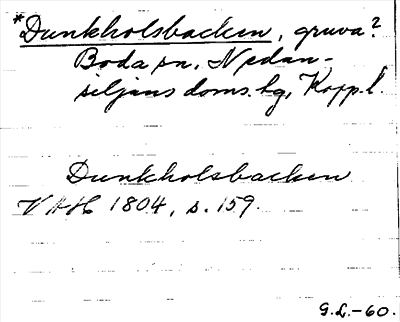 *Dunkholsbacken, gruva?
Boda sn, Nedan-
siljans doms.hg, Kopp.l.
Dunkholsbacken
VAH 1804, s. 159.
G.L.-60.